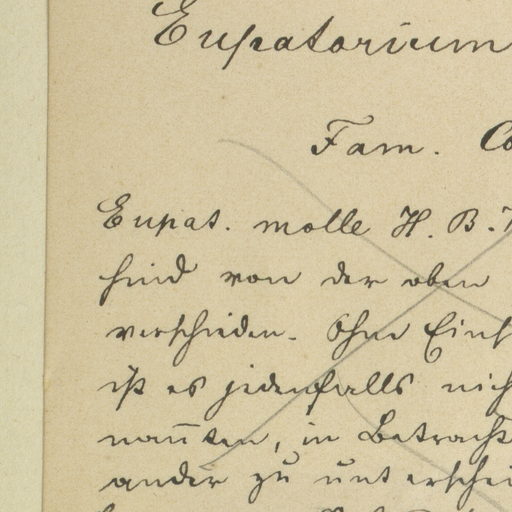 Eupatorium
Fam. Co
Eupat. molle H. B.
sind von der oben
verschieden. Ohne Eins
ist es jedenfalls nich
nannten, in Betracht
ander zu unterschei